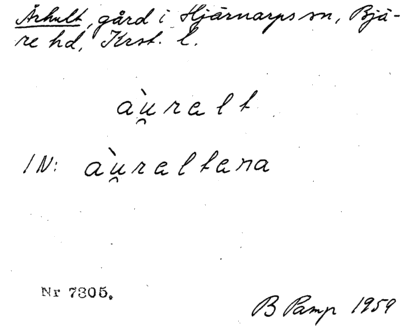 Århult, gård i Hjärnarps sn, Bjä-
re hd, Krst. l.
àu̯ralt
IN: àu̯raltana
Nr 7305.
B Pamp 1959